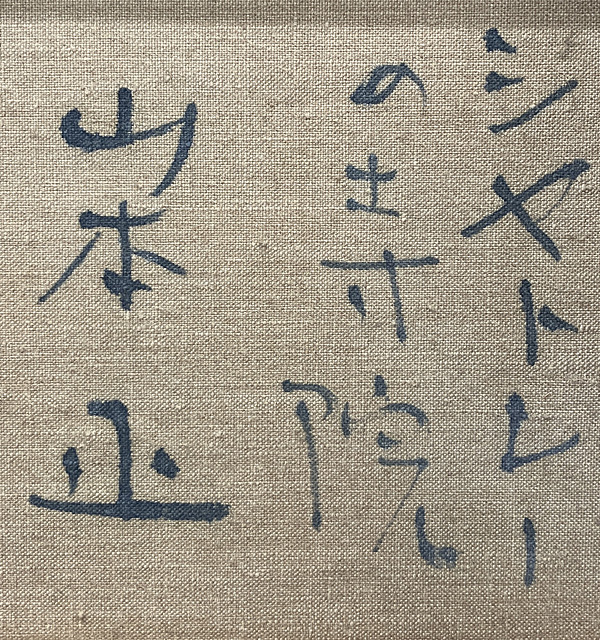 シヤトレー
の寺院
山本 正